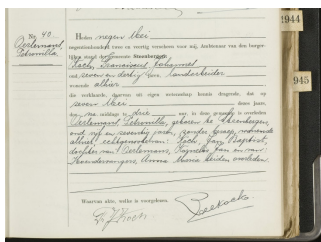 No. 40.
Oerlemans,
Petronella.
Heden negen Mei
negentienhonderd twee en veertig verscheen voor mij, Ambtenaar van den burger-
lijken stand der gemeente Steenbergen:
Koch, Franciscus Johannes
oud zeven en dertig jaar, landarbeider
wonende alhier
die verklaarde, daarvan uit eigen wetenschap kennis dragende, dat op
zeven Mei dezes jaars,
des na middags te drie uur, in deze gemeente is overleden
Oerlemans Petronella, geboren te Steenbergen,
oud vijf en zeventig jaren, zonder beroep, wonende
alhier, echtgenoote van Koch, Jan Baptist,
dochter van Oerlemans, Cornelis Jan en van
Anna Maria beiden overleden.
Waarvan akte, welke is voorgelezen.
F. J. Koch
1944
945